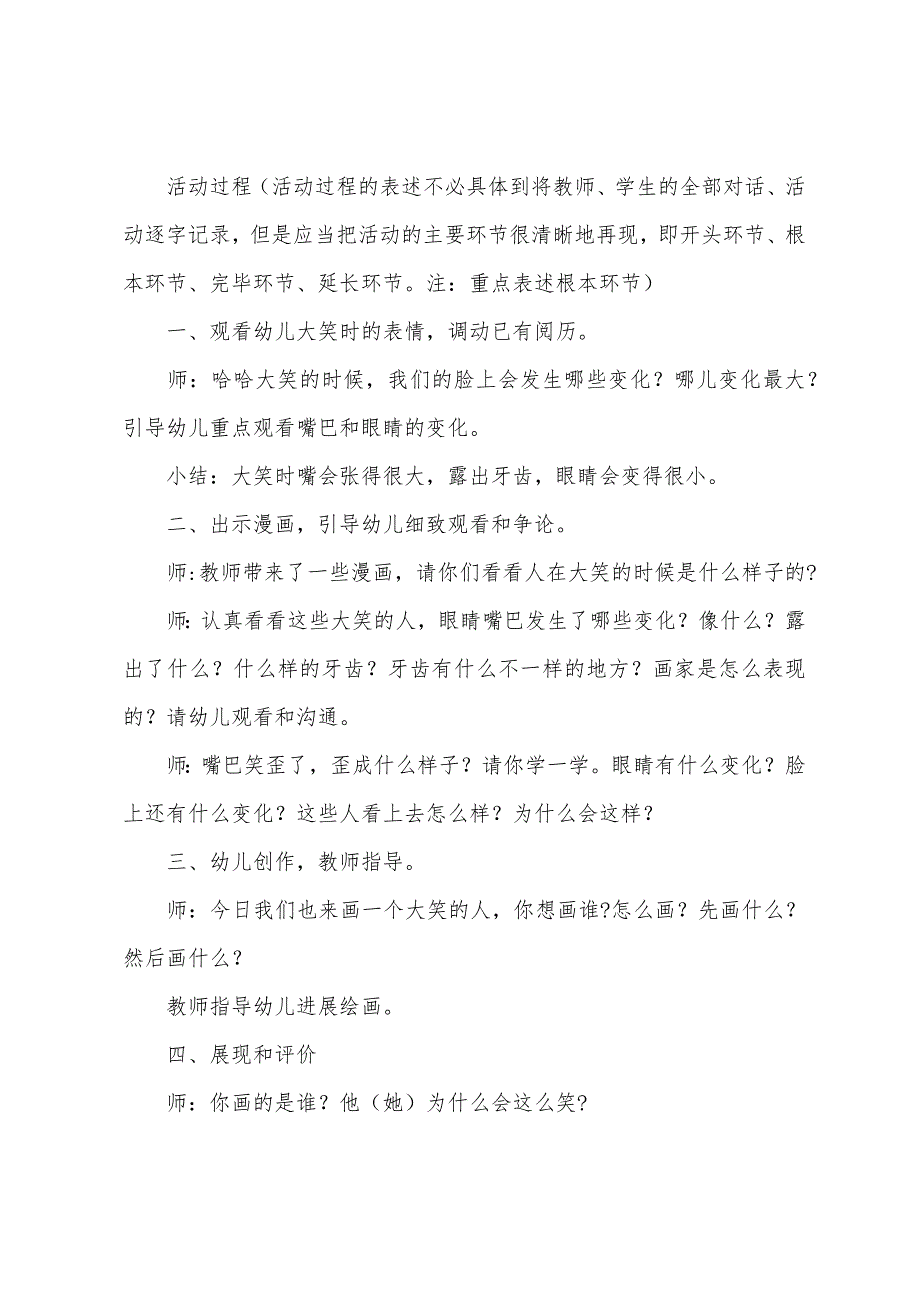 活动过程（活动过程的表述不必具体到将教师、学生的全部对话、活
动逐字记录，但是应当把活动的主要环节很清晰地再现，即开头环节、根
本环节、完毕环节、延长环节。注：重点表述根本环节）
一、观看幼儿大笑时的表情，调动已有阅历。
师：哈哈大笑的时候，我们的脸上会发生哪些变化？哪儿变化最大？
引导幼儿重点观看嘴巴和眼睛的变化。
小结：大笑时嘴会张得很大，露出牙齿，眼睛会变得很小。
二、出示漫画，引导幼儿细致观看和争论。
师:教师带来了一些漫画，请你们看看人在大笑的时候是什么样子的?
师：认真看看这些大笑的人，眼睛嘴巴发生了哪些变化？像什么？露
出了什么？什么样的牙齿？牙齿有什么不一样的地方？画家是怎么表现
的？请幼儿观看和沟通。
师：嘴巴笑歪了，歪成什么样子？请你学一学。眼睛有什么变化？脸
上还有什么变化？这些人看上去怎么样？为什么会这样？
三、幼儿创作，教师指导。
师：今日我们也来画一个大笑的人，你想画谁?怎么画？先画什么？
然后画什么？
教师指导幼儿进展绘画。
四、展现和评价
师：你画的是谁？他（她）为什么会这么笑?